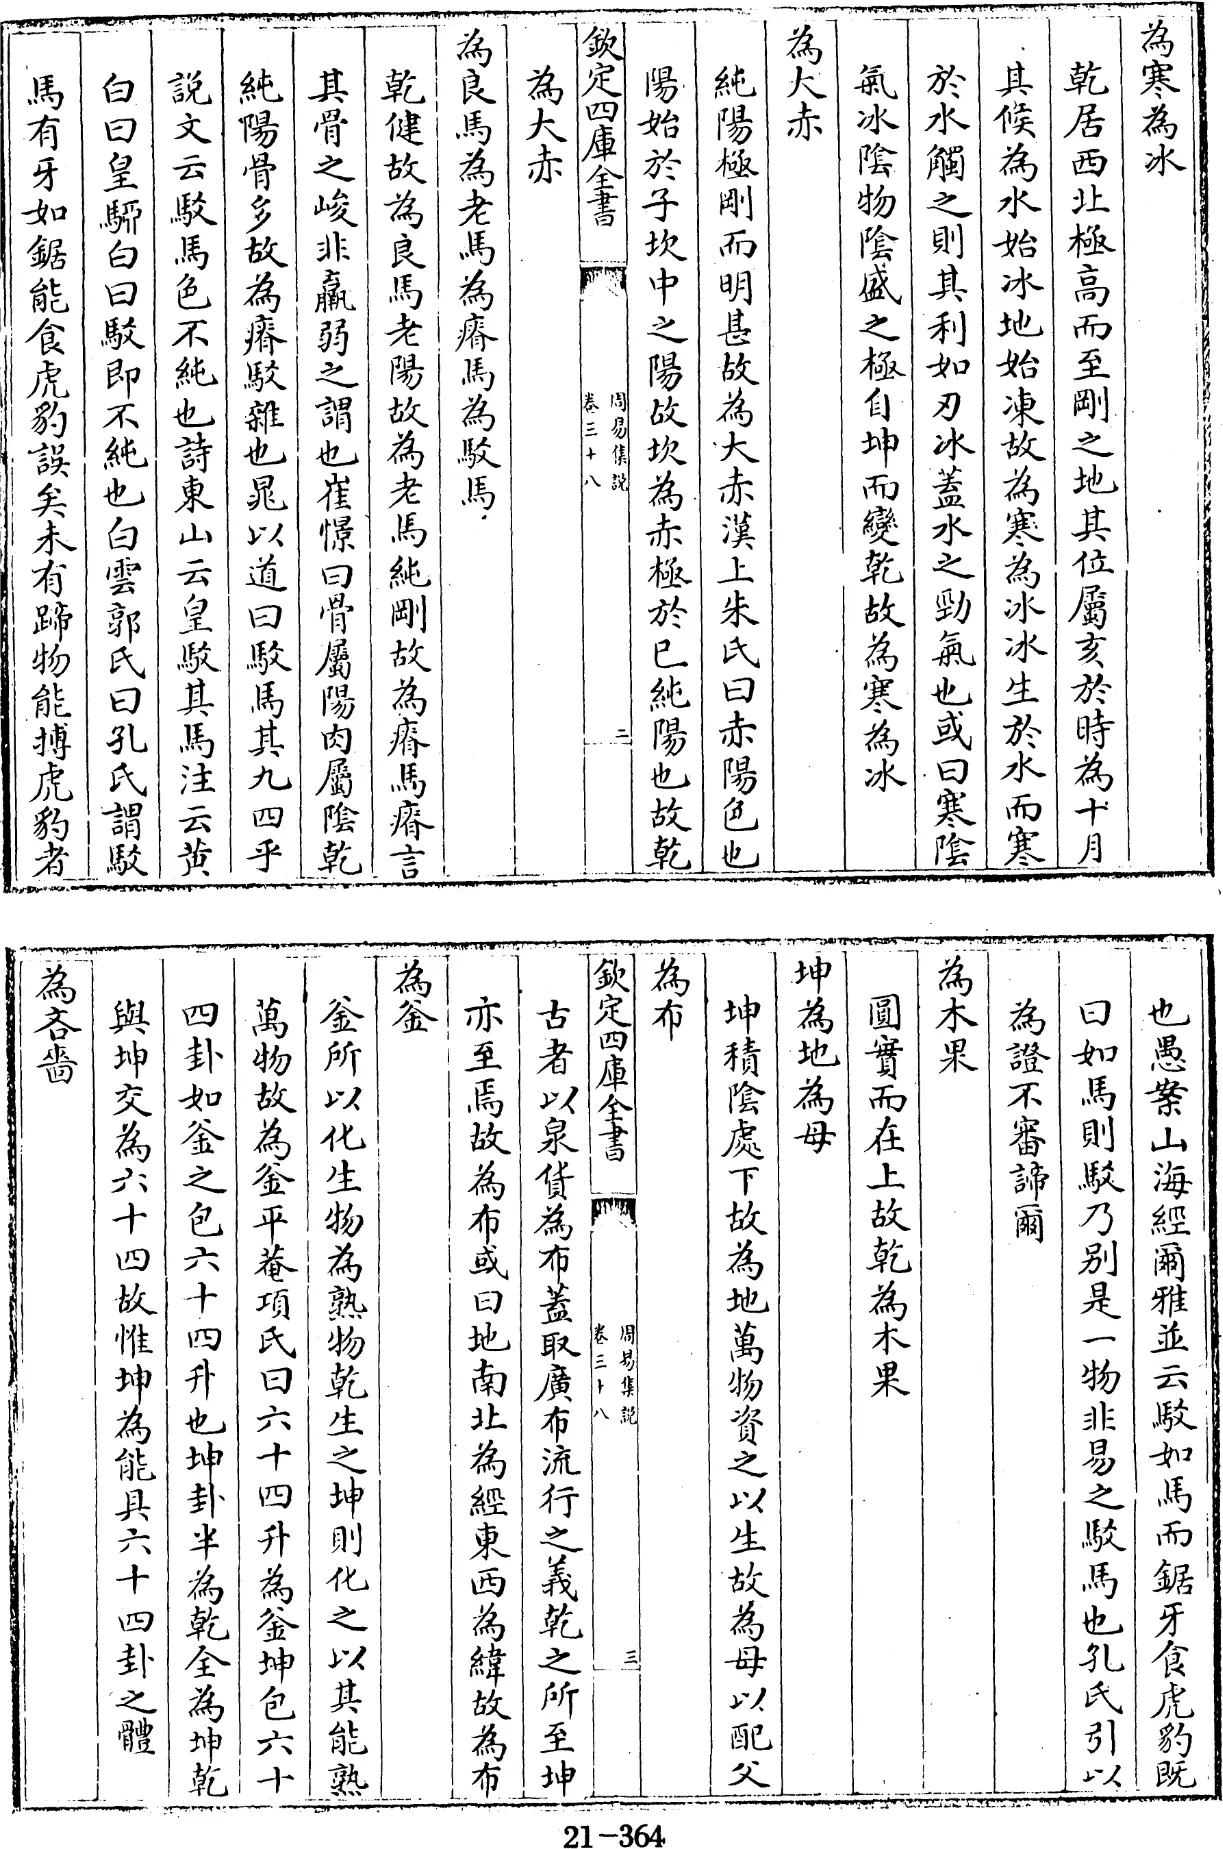 為寒為冰
乾居西北極高而至剛之地其位屬亥於時為十月
其候為水始冰地始凍故為寒為冰冰生於水而寒
於水觸之則其利如刃冰蓋水之勁氣也或曰寒陰
氣冰陰物陰盛之極自坤而變乾故為寒為冰
為大赤
純陽極剛而明甚故為大赤漢上朱氏曰赤陽色也
陽始於子坎中之陽故坎為赤極於巳純陽也故乾
欽定四庫全書
周易集說
卷三十八
二
為大赤
為良馬為老馬為瘠馬為駁馬
乾健故為良馬老陽故為老馬純剛故為瘠馬瘠言
其骨之峻非羸弱之謂也崔憬曰骨屬陽肉屬陰乾
純陽骨多故為瘠駁雜也晁以道曰駁馬其九四乎
說文云駁馬色不純也詩東山云皇駁其馬注云黄
白曰皇騢白曰駁即不純也白雲郭氏曰孔氏謂駁
馬有牙如鋸能食虎豹誤矣未有蹄物能搏虎豹者
也愚案山海經爾雅並云駮如馬而鋸牙食虎豹既
曰如馬則駮乃别是一物非易之駁馬也孔氏引以
為證不審諦爾
為木果
圓實而在上故乾為木果
坤為地為母
坤積陰處下故為地萬物資之以生故為母以配父
為布
欽定四庫全書
周易集說
卷三十八
三
古者以泉貨為布蓋取廣布流行之義乾之所至坤
亦至焉故為布或曰地南北為經東西為緯故為布
為釜
釜所以化生物為熟物乾生之坤則化之以其能熟
萬物故為釜平菴項氏曰六十四升為釜坤包六十
四卦如釜之包六十四升也坤卦半為乾全為坤乾
與坤交為六十四故惟坤為能具六十四卦之體
為吝嗇
21-364